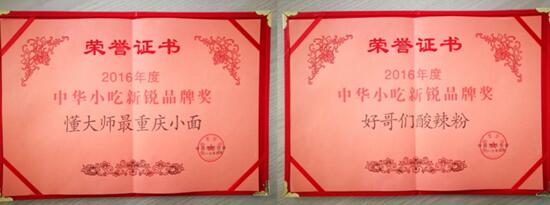 荣誉证书
2016年度
中华小吃新锐品牌奖
懂大师最重庆小面
荣誉证书
2016年度
中华小吃新锐品牌奖
好哥们酸辣粉